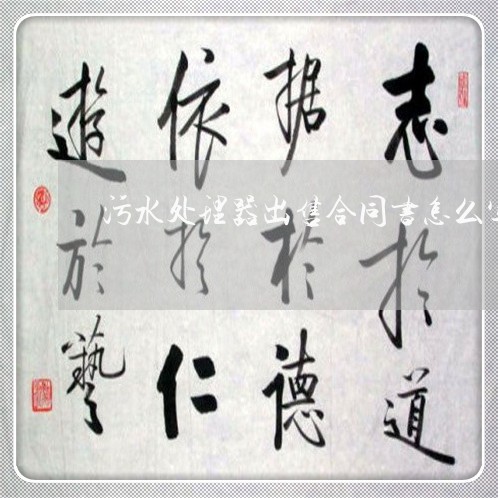 志於道
据於德
依於仁
遊於藝
污水处理器出售合同书怎么